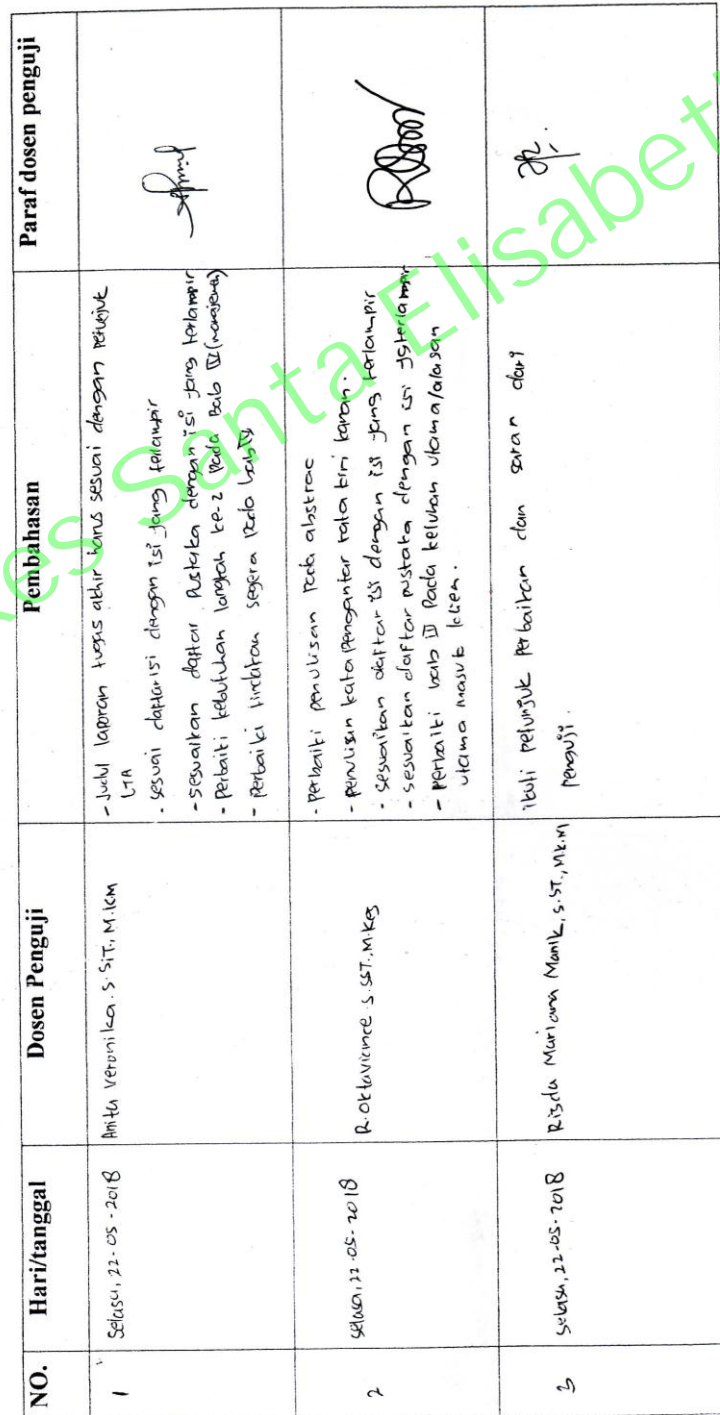 NO.
Hari/tanggal
Dosen Penguji
Pembahasan
Paraf dosen penguji
1
Selasa, 22-05-2018
Anita Veronika. S.SiT., M.KM
- Judul laporan tugas akhir harus sesuai dengan petunjuk
LTA
- sesuai daftar isi dengan isi yang terlampir
- sesuaikan daftar Pustaka dengan isi yang terlampir
- Perbaiki kebutuhan langkah ke-2 Pada Bab IV (manajemen)
- Perbaiki tindakan segera Pada bab IV
2
selasa, 22-05-2018
R. Oktaviance S. SST., M.Kes
- Perbaiki penulisan Pada abstrac
- penulisan kata pengantar rata kiri kanan.
- sesuaikan daftar isi dengan isi yang terlampir
- sesuaikan daftar pustaka dengan isi yg terlampir
- perbaiki bab Pada keluhan utama/alasan
utama masuk klien.
3
selasa, 22-05-2018
Risda Mariana Manik, S.ST., M.K.M
ikuti petunjuk perbaikan dan saran dari
penguji.
kes Santa Elisabet